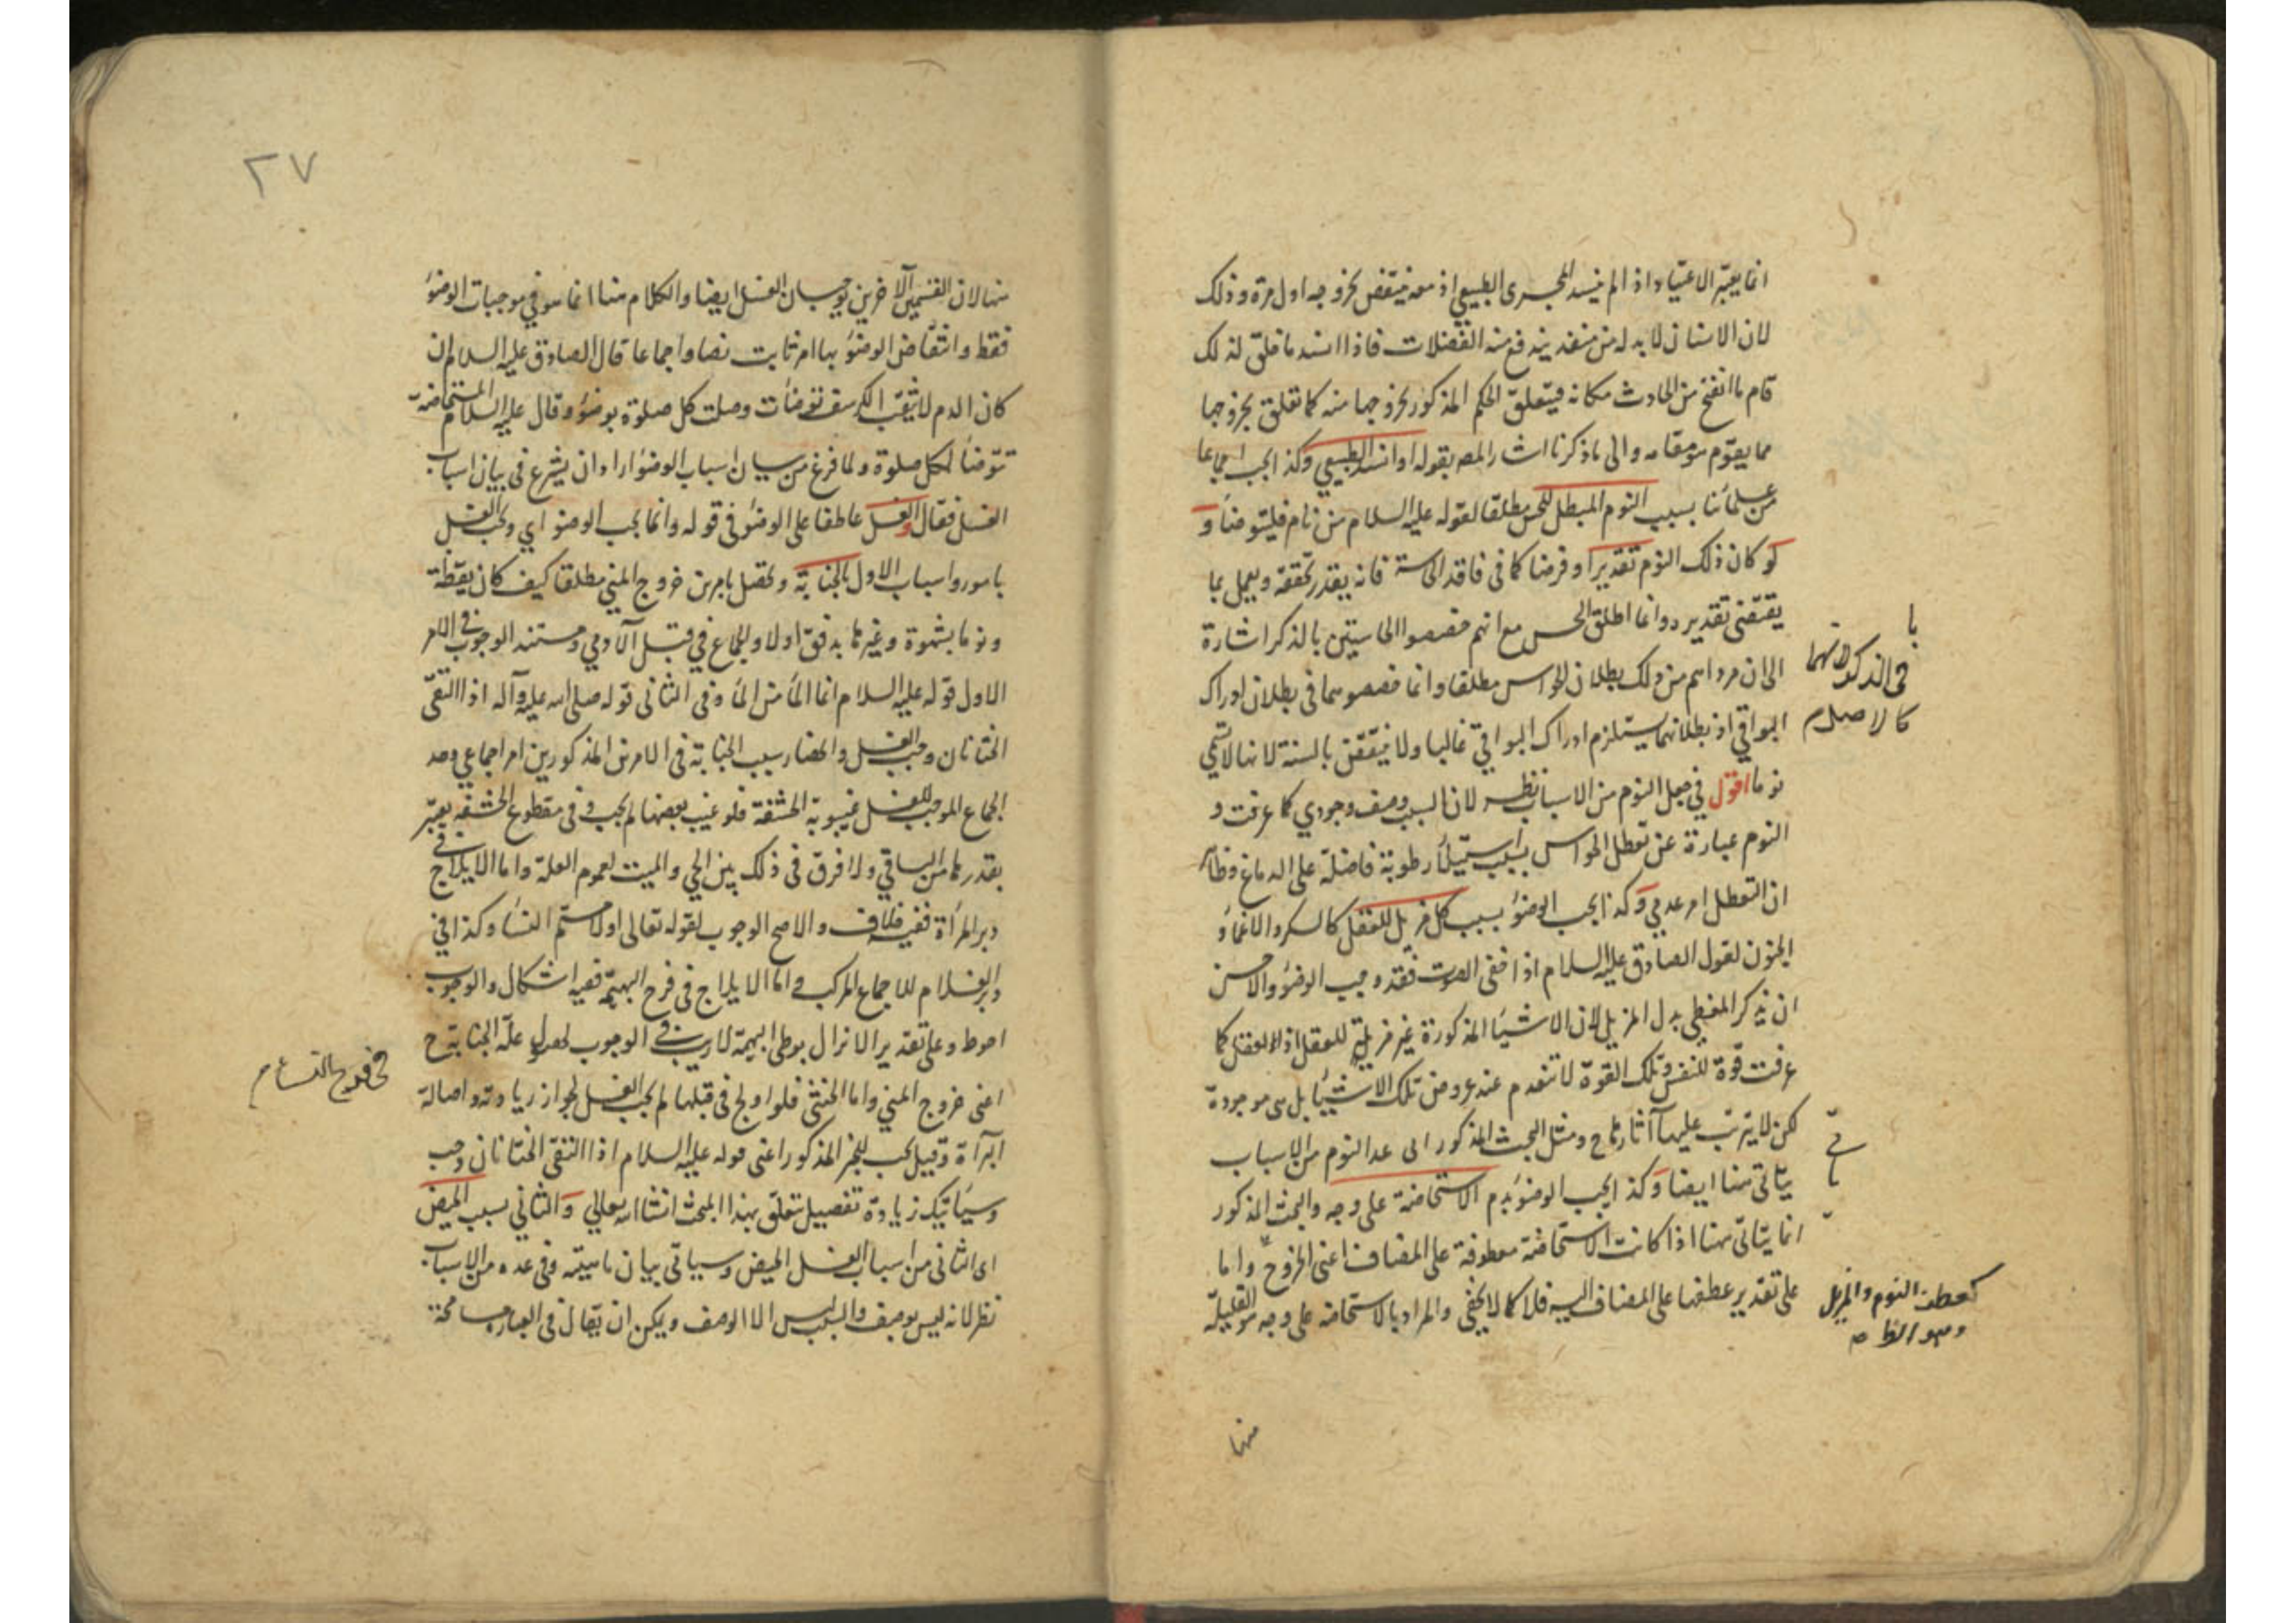 انما يعتبر الاعتياد اذا لم ينسد المجرى الطبيعي اذ معه ينتقض بخروجه اول مرة وذلك
لان الانسان لا بد له من منفذ يندفع منه الفضلات فاذا انسد ما خلق لذلك
قام ما انفتح من الحادث مكانه فيتعلق الحكم المذكور بخروجها منه كما تعلق بخروجها
مما يقوم هو مقامه والى ما ذكرنا اشار المصـ بقوله او انسد الطبيعي وكذا يجب اجماعا
من علمائنا بسبب النوم المبطل للحس مطلقا لقوله عليه السلام من نام فليتوضأ و
لو كان ذلك النوم تقديرا وفرضا كما في فاقد الحاسة فانه يقدر تحققه ويعمل بما
يقتضي تقديره وانما اطلق الحس مع انهم خصصوا الحاستين بالذكر اشارة
الى ان مرادهم من ذلك بطلان الحواس مطلقا وانما خصصوهما في بطلان ادراك
البواقي اذ بطلانهما يستلزم ادراك البواقي غالبا ولا ينتقض بالسنة لانها لا تسمى
نوما اقول في جعل النوم من الاسباب نظر لان السبب وصف وجودي كما عرفت و
النوم عبارة عن تعطل الحواس بسبب استيلاء رطوبة فاضلة على الدماغ وظاهر
ان التعطل امر عدمي وكذا يجب الوضوء بسبب كل مزيل للعقل كالسكر والاغماء و
الجنون لقول الصادق عليه السلام اذا خفى الصوت فقد وجب الوضوء والاحسن
ان يذكر المغطي بدل المزيل لان الاشياء المذكورة غير مزيلة للعقل اذ العقل كما
عرفت قوة للنفس وتلك القوة لا تنعدم عند عروض تلك الاشياء بل هي موجودة
لكن لا يترتب عليها آثارها ح ومثل البحث المذكور اى عد النوم من الاسباب
يتأتى هنا ايضا وكذا يجب الوضوء بدم الاستحاضة على وجه والبحث المذكور
انما يتأتى ههنا اذا كانت الاستحاضة معطوفة على المضاف اعنى الخروج واما
على تقدير عطفها على المضاف اليه فلا كما لا يخفى والمراد بالاستحاضة على وجه هو القليلة
با
في الذكر لانهما
كالاصل م
كعطف النوم والمزيل
وهو الظ صـ
منها
٢٧
منها لان القسمين الآخرين يوجبان الغسل ايضا والكلام هنا انما هو في موجبات الوضوء
فقط وانتقاض الوضوء بها امر ثابت نصا واجماعا قال الصادق عليه السلام ان
كان الدم لا يثقب الكرسف توضأت وصلت كل صلوة بوضوء وقال عليه السلام المستحاضة
تتوضأ لكل صلوة ولما فرغ من بيان اسباب الوضوء اراد ان يشرع في بيان اسباب
الغسل فقال والغسل عاطفا على الوضوء في قوله وانما يجب الوضوء اي ويجب الغسل
بامور واسباب الاول بالجنابة وتحصل بامرين خروج المني مطلقا كيف كان يقظة
ونوما بشهوة وغيرها بدفق اولا والجماع في قبل الآدمي ومستند الوجوب في الامر
الاول قوله عليه السلام انما الماء من الماء وفي الثاني قوله صلى الله عليه وآله اذا التقى
الختانان وجب الغسل وانحصار سبب الجنابة في الامرين المذكورين امر اجماعي وحد
الجماع الموجب للغسل غيبوبة الحشفة فلو غيب بعضها لم يجب وفى مقطوع الحشفة يعتبر
بقدرها من الباقي ولا فرق في ذلك بين الحي والميت لعموم العلة واما الايلاج في
دبر المرأة ففيه خلاف والاصح الوجوب لقوله تعالى او لامستم النساء وكذا في
دبر الغلام للاجماع المركب واما الايلاج في فرج البهيمة ففيه اشكال والوجوب
احوط وعلى تقدير الانزال بوطى البهيمة لا ريب في الوجوب لحصول علة الجنابة ح
اعنى خروج المني واما الخنثى فلو اولج في قبلها لم يجب الغسل لجواز زيادته واصالة
البراءة وقيل يجب للخبر المذكور اعنى قوله عليه السلام اذا التقى الختانان وجب
وسيأتيك زيادة تفصيل يتعلق بهذا المبحث انشا الله تعالى والثاني بسبب الحيض
اى الثاني من اسباب الغسل الحيض وسيأتي بيان ماهيته وفى عده من الاسباب
نظر لانه ليس بوصف والسبب ليس الا الوصف ويمكن ان يقال في العبارة مسامحة
في فروج النساء م